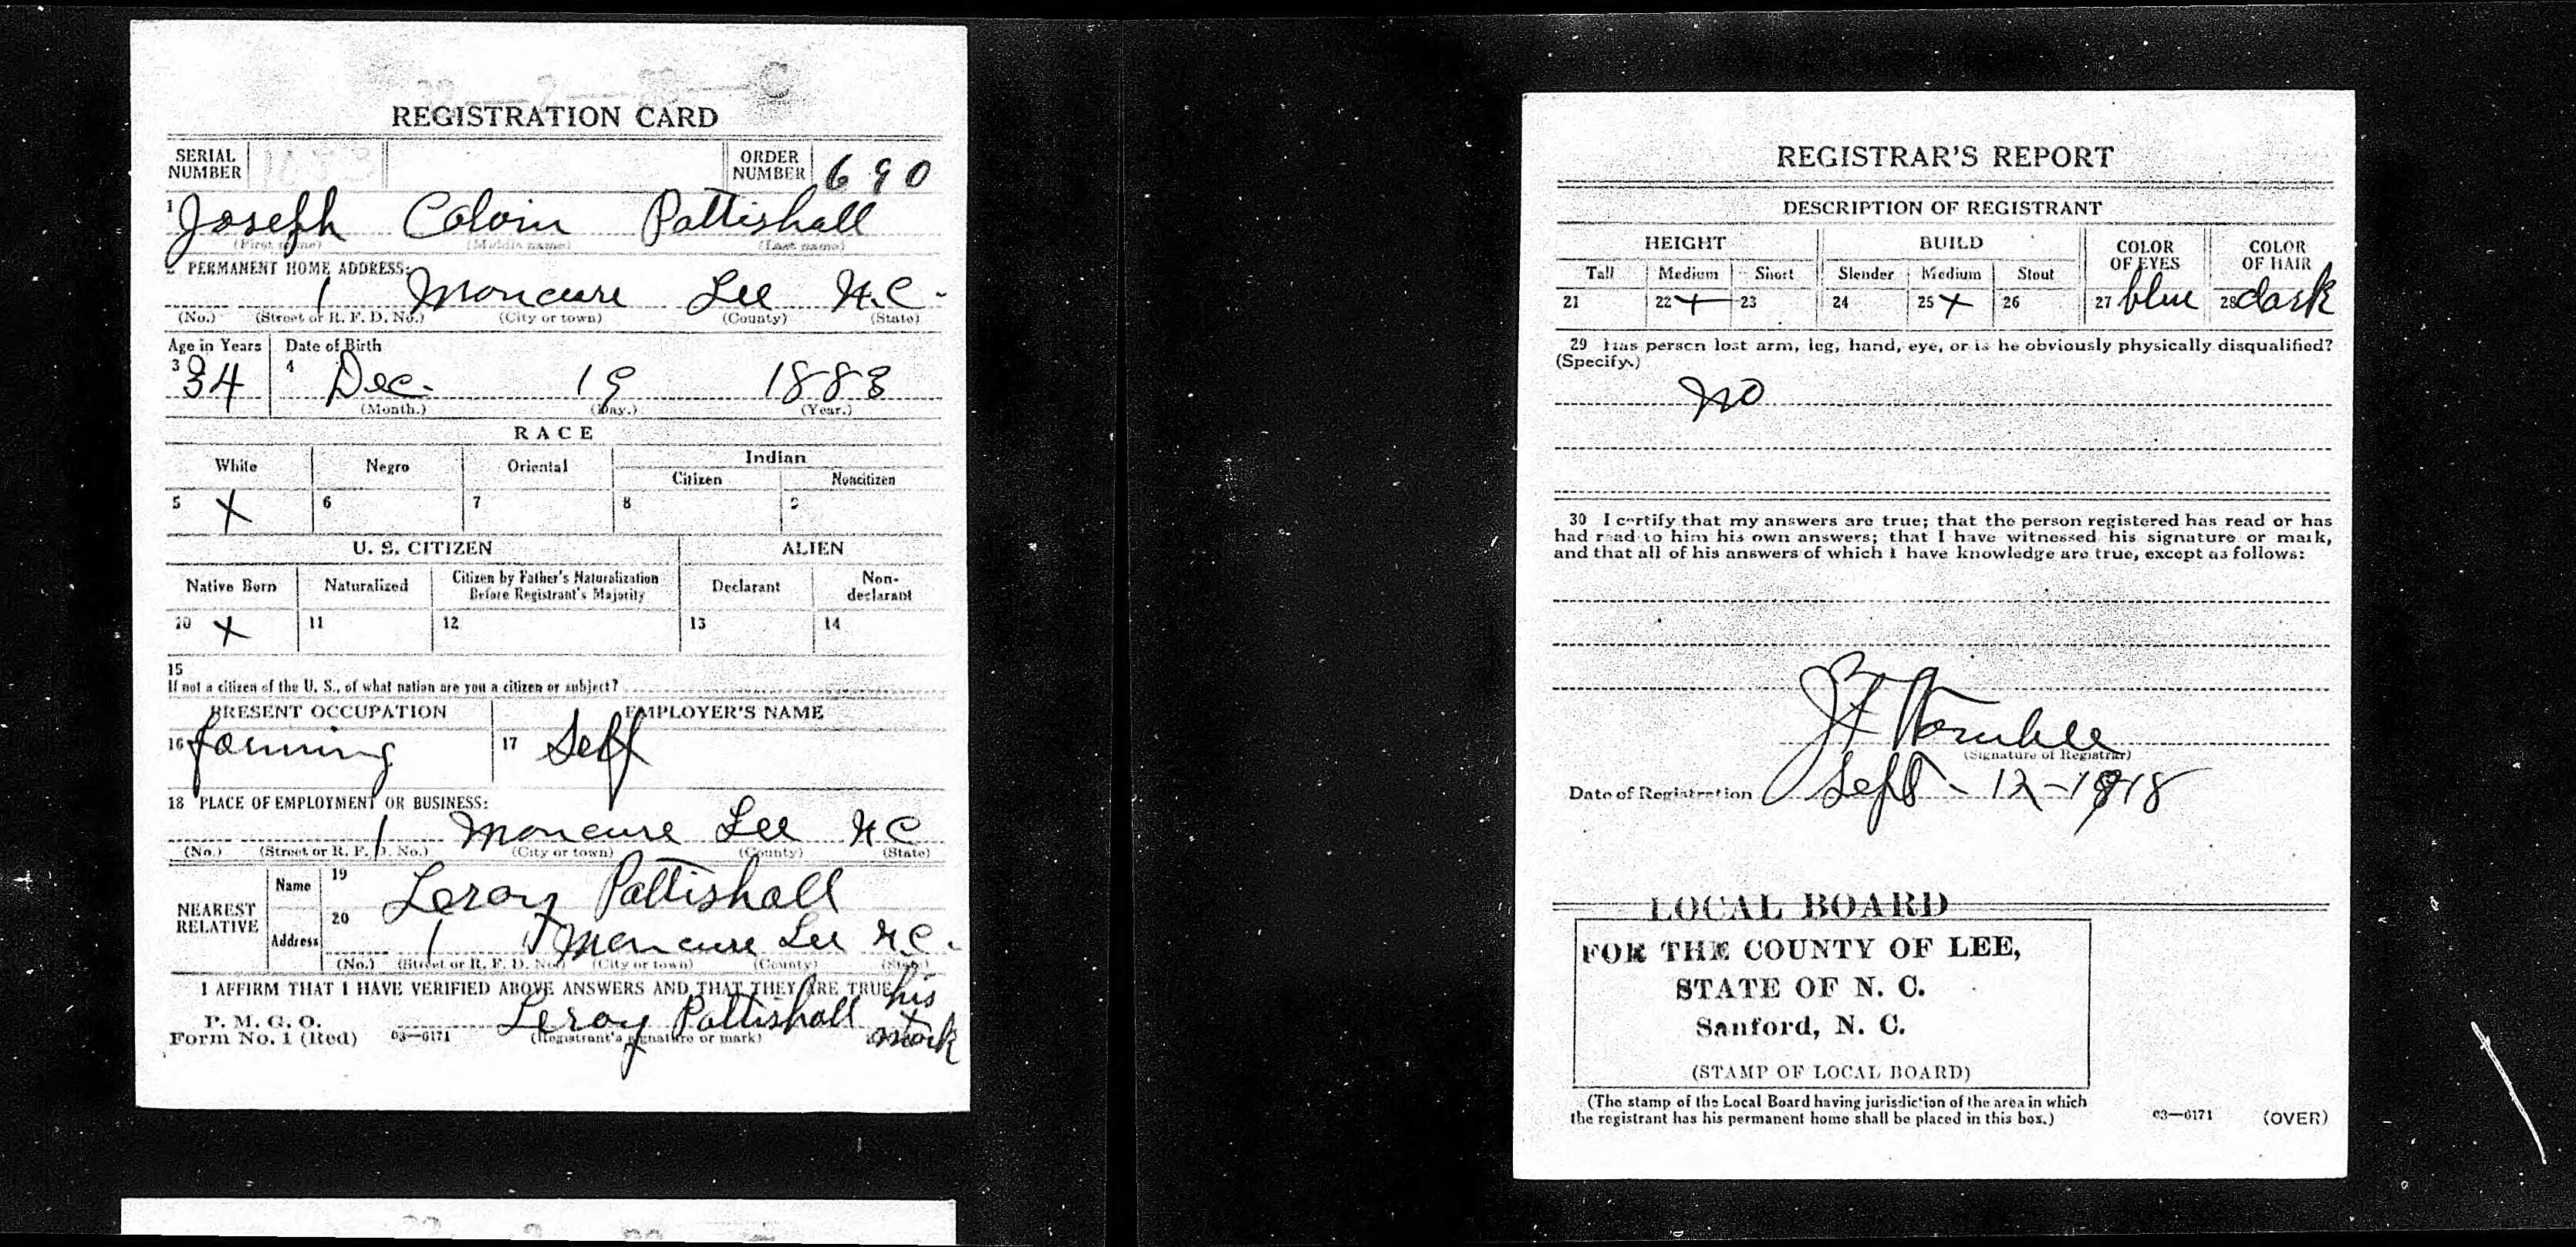 REGISTRATION CARD
SERIAL NUMBER
ORDER NUMBER 690
1 Joseph Colvin Pattishall
(First name) (Middle name) (Last name)
2 PERMANENT HOME ADDRESS:
1 Moncure Lee N.C.
(No.) (Street or R. F. D. No.) (City or town) (County) (State)
Age in Years Date of Birth
3 34 4 Dec. 19 1883
(Month.) (Day.) (Year.)
RACE
White Negro Oriental Indian
Citizen Noncitizen
5 X 6 7 8 9
U. S. CITIZEN ALIEN
Native Born Naturalized Citizen by Father's Naturalization Before Registrant's Majority Declarant Non-declarant
10 X 11 12 13 14
15
If not a citizen of the U. S., of what nation are you a citizen or subject?
PRESENT OCCUPATION EMPLOYER'S NAME
16 farming 17 Self
18 PLACE OF EMPLOYMENT OR BUSINESS:
1 Moncure Lee N C
(No.) (Street or R. F. D. No.) (City or town) (County) (State)
NEAREST RELATIVE
Name 19 Leroy Pattishall
Address 20 1 Moncure Lee N.C.
(No.) (Street or R. F. D. No.) (City or town) (County) (State)
I AFFIRM THAT I HAVE VERIFIED ABOVE ANSWERS AND THAT THEY ARE TRUE
P. M. G. O.
Form No. 1 (Red) 03—6171 Leroy Pattishall his x mark
(Registrant's signature or mark)
REGISTRAR'S REPORT
DESCRIPTION OF REGISTRANT
HEIGHT BUILD COLOR OF EYES COLOR OF HAIR
Tall Medium Short Slender Medium Stout
21 22 X 23 24 25 X 26 27 blue 28 dark
29 Has person lost arm, leg, hand, eye, or is he obviously physically disqualified?
(Specify.)
no
30 I certify that my answers are true; that the person registered has read or has
had read to him his own answers; that I have witnessed his signature or mark,
and that all of his answers of which I have knowledge are true, except as follows:
Womble
(Signature of Registrar)
Date of Registration Sept - 12 - 1918
LOCAL BOARD
FOR THE COUNTY OF LEE,
STATE OF N. C.
Sanford, N. C.
(STAMP OF LOCAL BOARD)
(The stamp of the Local Board having jurisdiction of the area in which
the registrant has his permanent home shall be placed in this box.)
03—6171 (OVER)